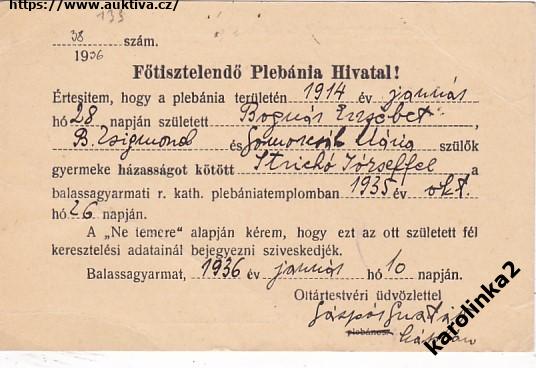 https://www.auktiva.cz/
133
38 szám.
1936
Főtisztelendő Plebánia Hivatal!
Értesitem, hogy a plebánia területén 1914 év január
hó 28 napján született Bognár Erzsébet,
B. Zsigmond és Mária szülők
gyermeke házasságot kötött Strichó Józseffel a
balassagyarmati r. kath. plebániatemplomban 1935 év okt.
hó 26 napján.
A „Ne temere" alapján kérem, hogy ezt az ott született fél
keresztelési adatainál bejegyezni sziveskedjék.
Balassagyarmat, 1936 év január hó 10 napján.
Oltártestvéri üdvözlettel
Gáspár
plebános
káplán
karolinka2